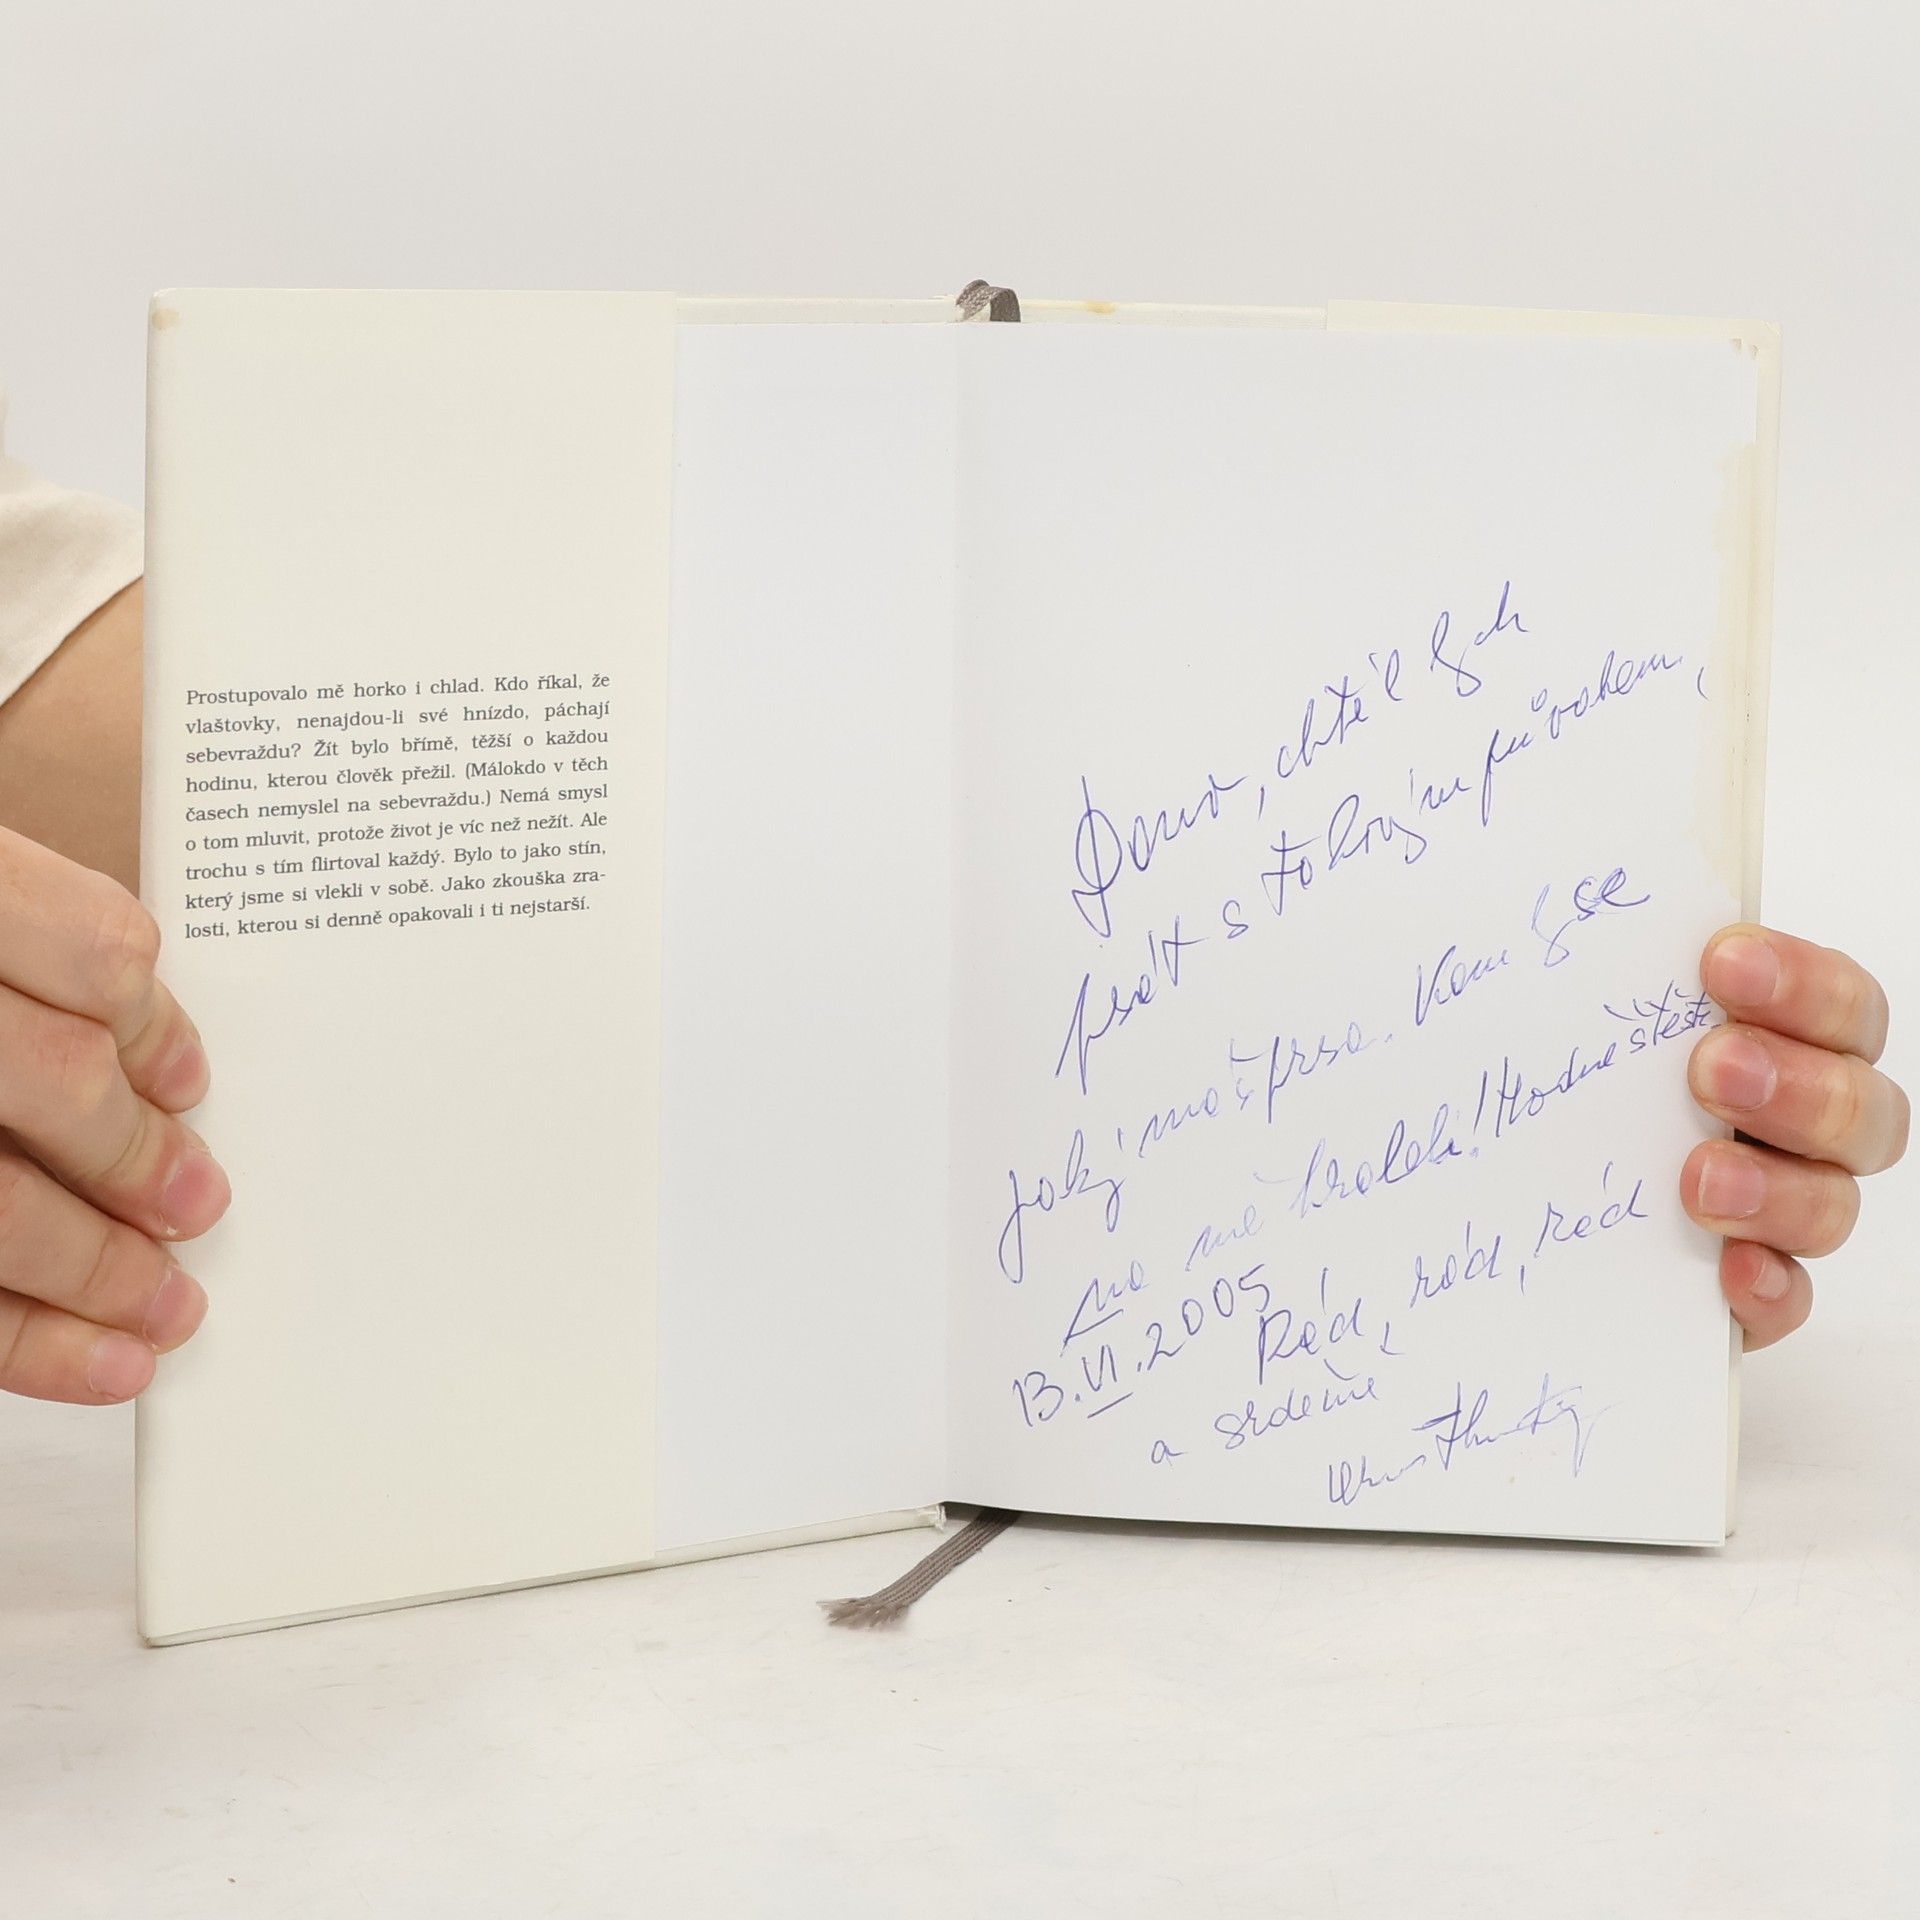 Prostupovalo mě horko i chlad. Kdo říkal, že
vlaštovky, nenajdou-li své hnízdo, páchají
sebevraždu? Žít bylo břímě, těžší o každou
hodinu, kterou člověk přežil. (Málokdo v těch
časech nemyslel na sebevraždu.) Nemá smysl
o tom mluvit, protože život je víc než nežít. Ale
trochu s tím flirtoval každý. Bylo to jako stín,
který jsme si vlekli v sobě. Jako zkouška zra-
losti, kterou si denně opakovali i ti nejstarší.
chtěl bych
psát s takovým půvabem,
jaký mají prsa. Kam by se
na mě hrabali! Hodně štěstí
13.VI.2005
Rád, rád, rád
a srdečně